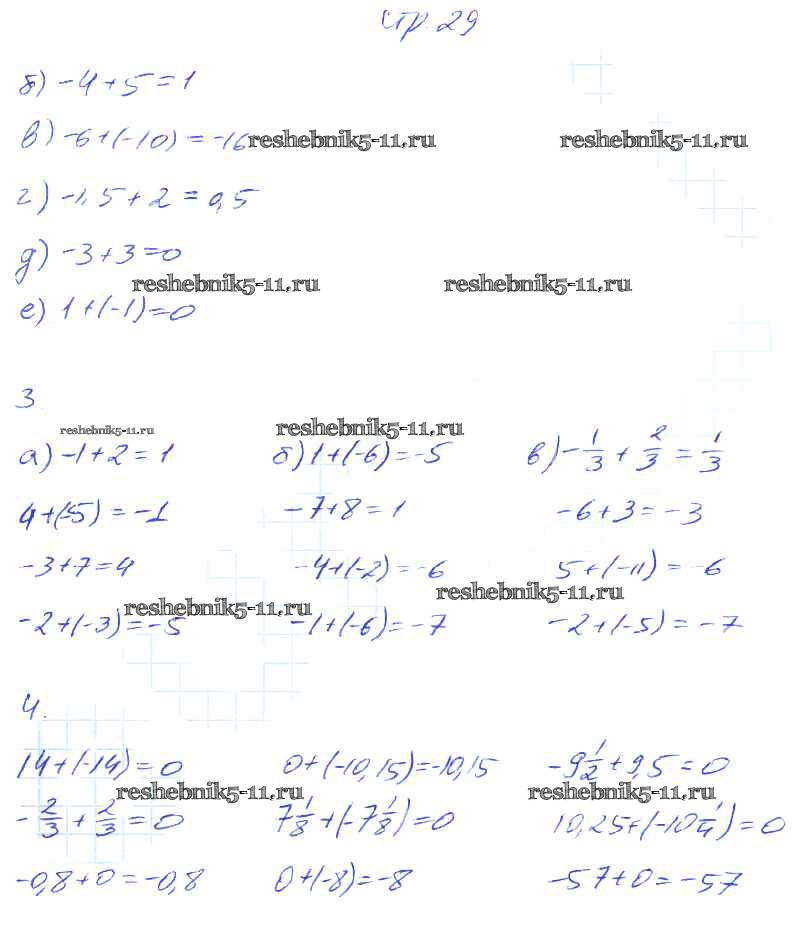 стр. 29
б) -4+5=1
в) -6+(-10) = -16 reshebnik5-11.ru reshebnik5-11.ru
г) -1,5+2=0,5
д) -3+3=0
reshebnik5-11.ru reshebnik5-11.ru
е) 1+(-1)=0
3.
reshebnik5-11.ru reshebnik5-11.ru
а) -1+2=1 б) 1+(-6)=-5 в) -1/3 + 2/3 = 1/3
4+(-5)=-1 -7+8=1 -6+3=-3
-3+7=4 -4+(-2)=-6 5+(-11)=-6
reshebnik5-11.ru reshebnik5-11.ru
-2+(-3)=-5 -1+(-6)=-7 -2+(-5)=-7
4.
14+(-14)=0 0+(-10,15)=-10,15 -9 1/2 + 9,5=0
reshebnik5-11.ru reshebnik5-11.ru
-2/3 + 2/3 = 0 7 1/8 + (-7 1/8)=0 10,25+(-10 1/4)=0
-0,8+0=-0,8 0+(-8)=-8 -57+0=-57